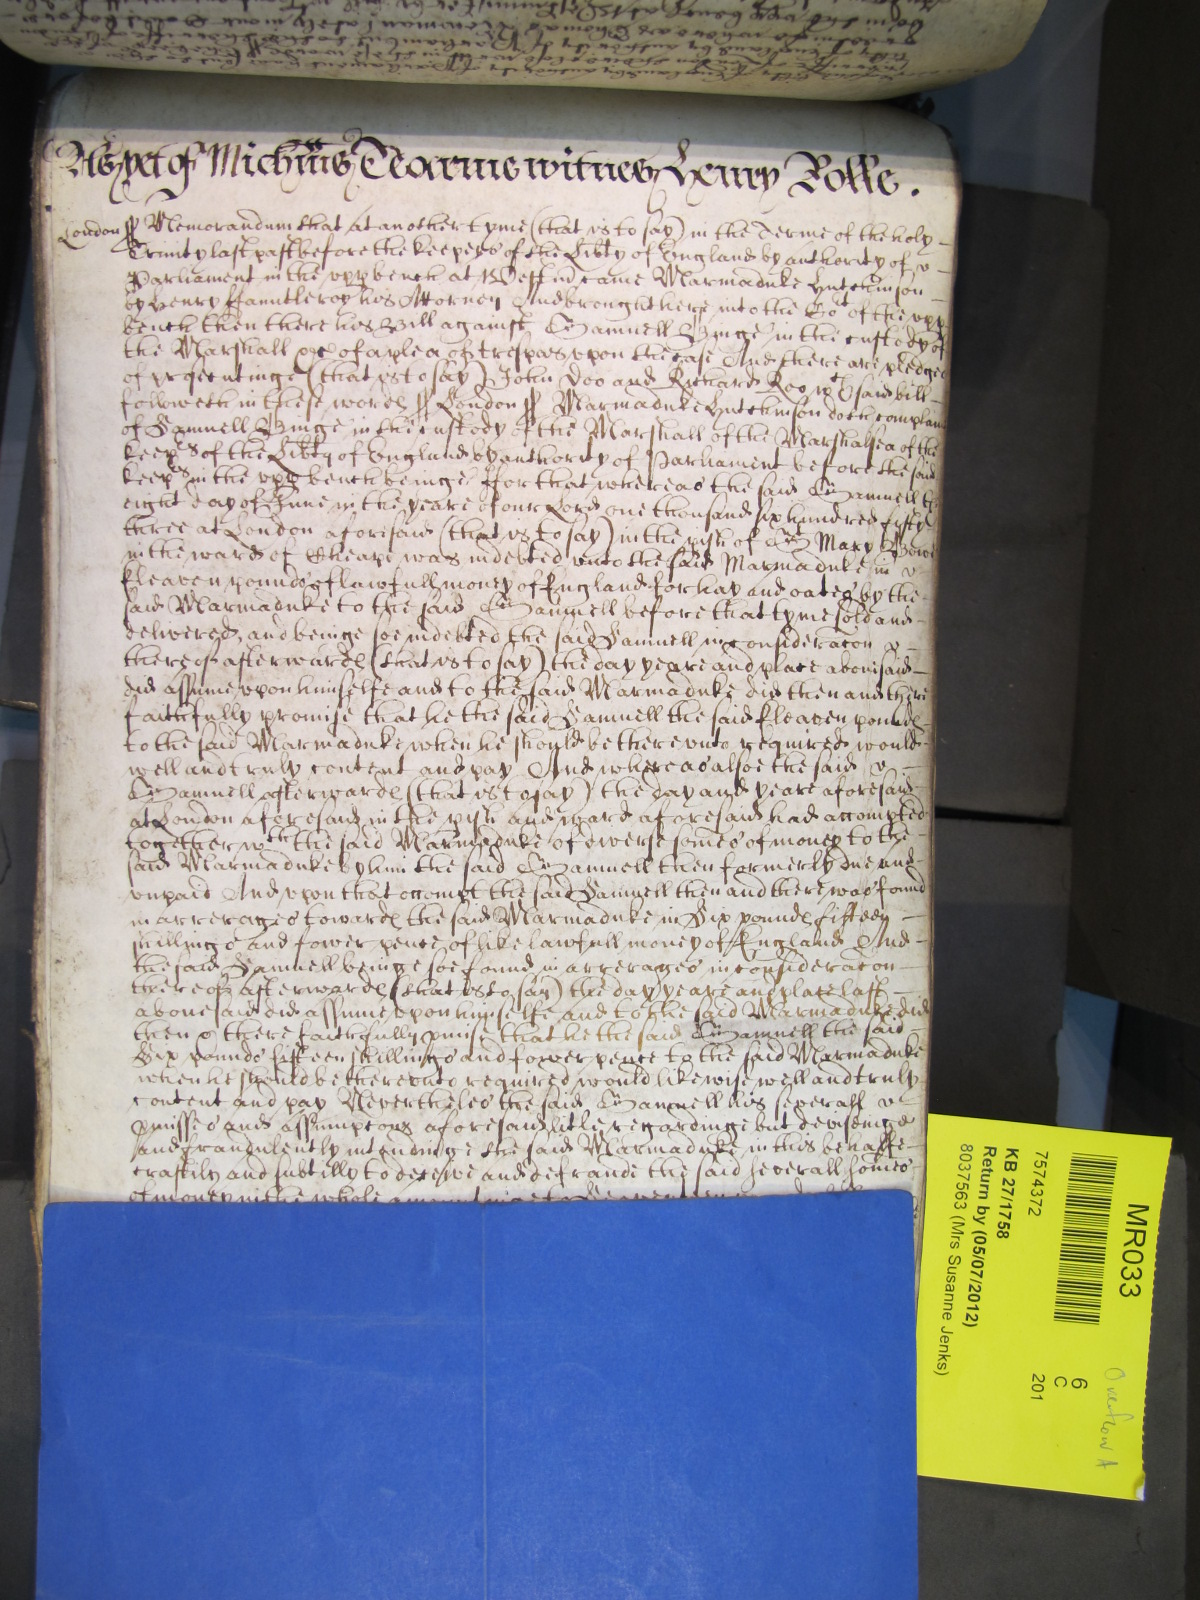 As yet of Michmas Tearme witnes Henry Rolle.
London ss Memorandum that at another tyme (that is to say) in the Terme of the holy
Trinity last past before the keepers of the Libty of England by authority of
Parliament in the upp bench at Westm came Marmaduke Hutchinson
by Henry Fauntleroy his Attorney And brought here into the Cot of the upp
bench then there his Bill against Samuell Binge in the custody of
the Marshall &c of a plea of trespas upon the case And there are pledges
of prosecutinge (that is to say) John Doo and Richard Roo wch said bill
followeth in these words ss London ss Marmaduke Hutchinson doth complaine
of Samuell Binge in the custody of the Marshall of the Marshalsea of the
keeps of the Libty of England by authority of Parliament before the said
keeps in the upp bench beinge ffor that whereas the said Samuell the
eight day of June in the yeare of our Lord one thousand six hundred fifty
three at London aforesaid (that is to say) in the pish of St Mary Bowe
in the ward of Cheape was indebted unto the said Marmaduke in
Eleaven pounds of lawfull money of England for hay and oates by the
said Marmaduke to the said Samuell before that tyme sold and
delivered, and beinge soe indebted the said Samuell in consideracon
thereof afterwards (that is to say) the day yeare and place abovesaid
did assume upon himselfe and to the said Marmaduke did then and there
faithfully promise that he the said Samuell the said Eleaven pounds
to the said Marmaduke when he should be thereunto required would
well and truly content and pay And whereas alsoe the said
Samuell afterwards (that is to say) the day and yeare aforesaid
at London aforesaid in the pish and ward aforesaid had accompted
together wth the said Marmaduke of diverse somes of money to the
said Marmaduke by him the said Samuell then formerly due and
unpaid And upon that accompt the said Samuell then and there was found
in arrerages towards the said Marmaduke in Six pounds fifteen
shillings and fower pence of like lawfull money of England And
the said Samuell beinge soe found in arrerages in consideracon
thereof afterwards (that is to say) the day yeare and place last
abovesaid did assume upon himselfe and to the said Marmaduke did
then & there faithfully pmise that he the said Samuell the said
Six pounds fifteen shillings and fower pence to the said Marmaduke
when he should be thereunto required would likewise well and truly
content and pay Neverthelesse the said Samuell his severall
pmisses and assumptons aforesaid little regardinge but devisinge
and fraudulently intendinge the said Marmaduke in this behalfe
craftily and subtilly to deceive and defraude the said severall somes
of money in the whole
MR033
7574372
KB 27/1758
Return by (05/07/2012)
8037563 (Mrs Susanne Jenks)
6
C
201
Overflow A